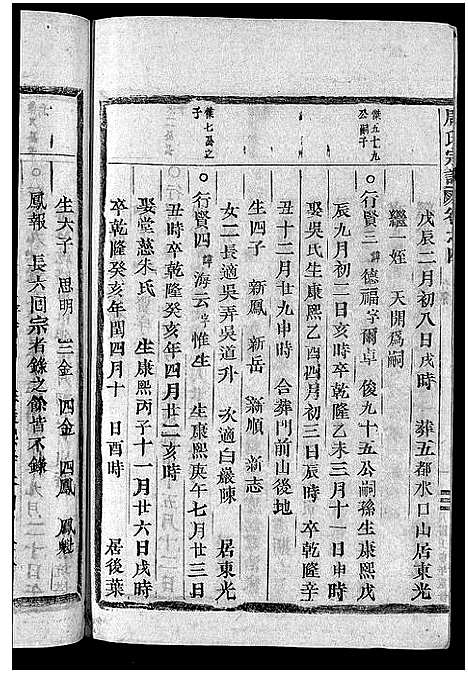 氏宗譜
戊辰二月初八日戌時 葬五都水口山居東光
繼一姪 天開爲嗣
傑五十九公嗣子
○行賢三 諱德福字爾卓 俊九十五公嗣孫生康熙戊
辰九月初三日亥時卒乾隆乙未三月十一日申時
娶吳氏生康熙乙酉四月初三日辰時卒乾隆辛
丑十二月廿九申時 合葬門前山後地
生四子 新鳳 新岳 新順 新志
女二長適吳弄吳道升 次適白巖陳 居東光
傑七公之子
○行賢四 諱海云字惟生 生康熙庚午七月廿三日
丑時卒乾隆癸亥年四月廿二亥時
娶堂慈朱氏 生康熙丙子十一月廿六日戌時
卒乾隆癸亥年閏四月十 日酉時 居後葉
生六子 思明 三金 四金 四鳳 鳳魁
鳳報 長六回宗者錄之餘皆不錄